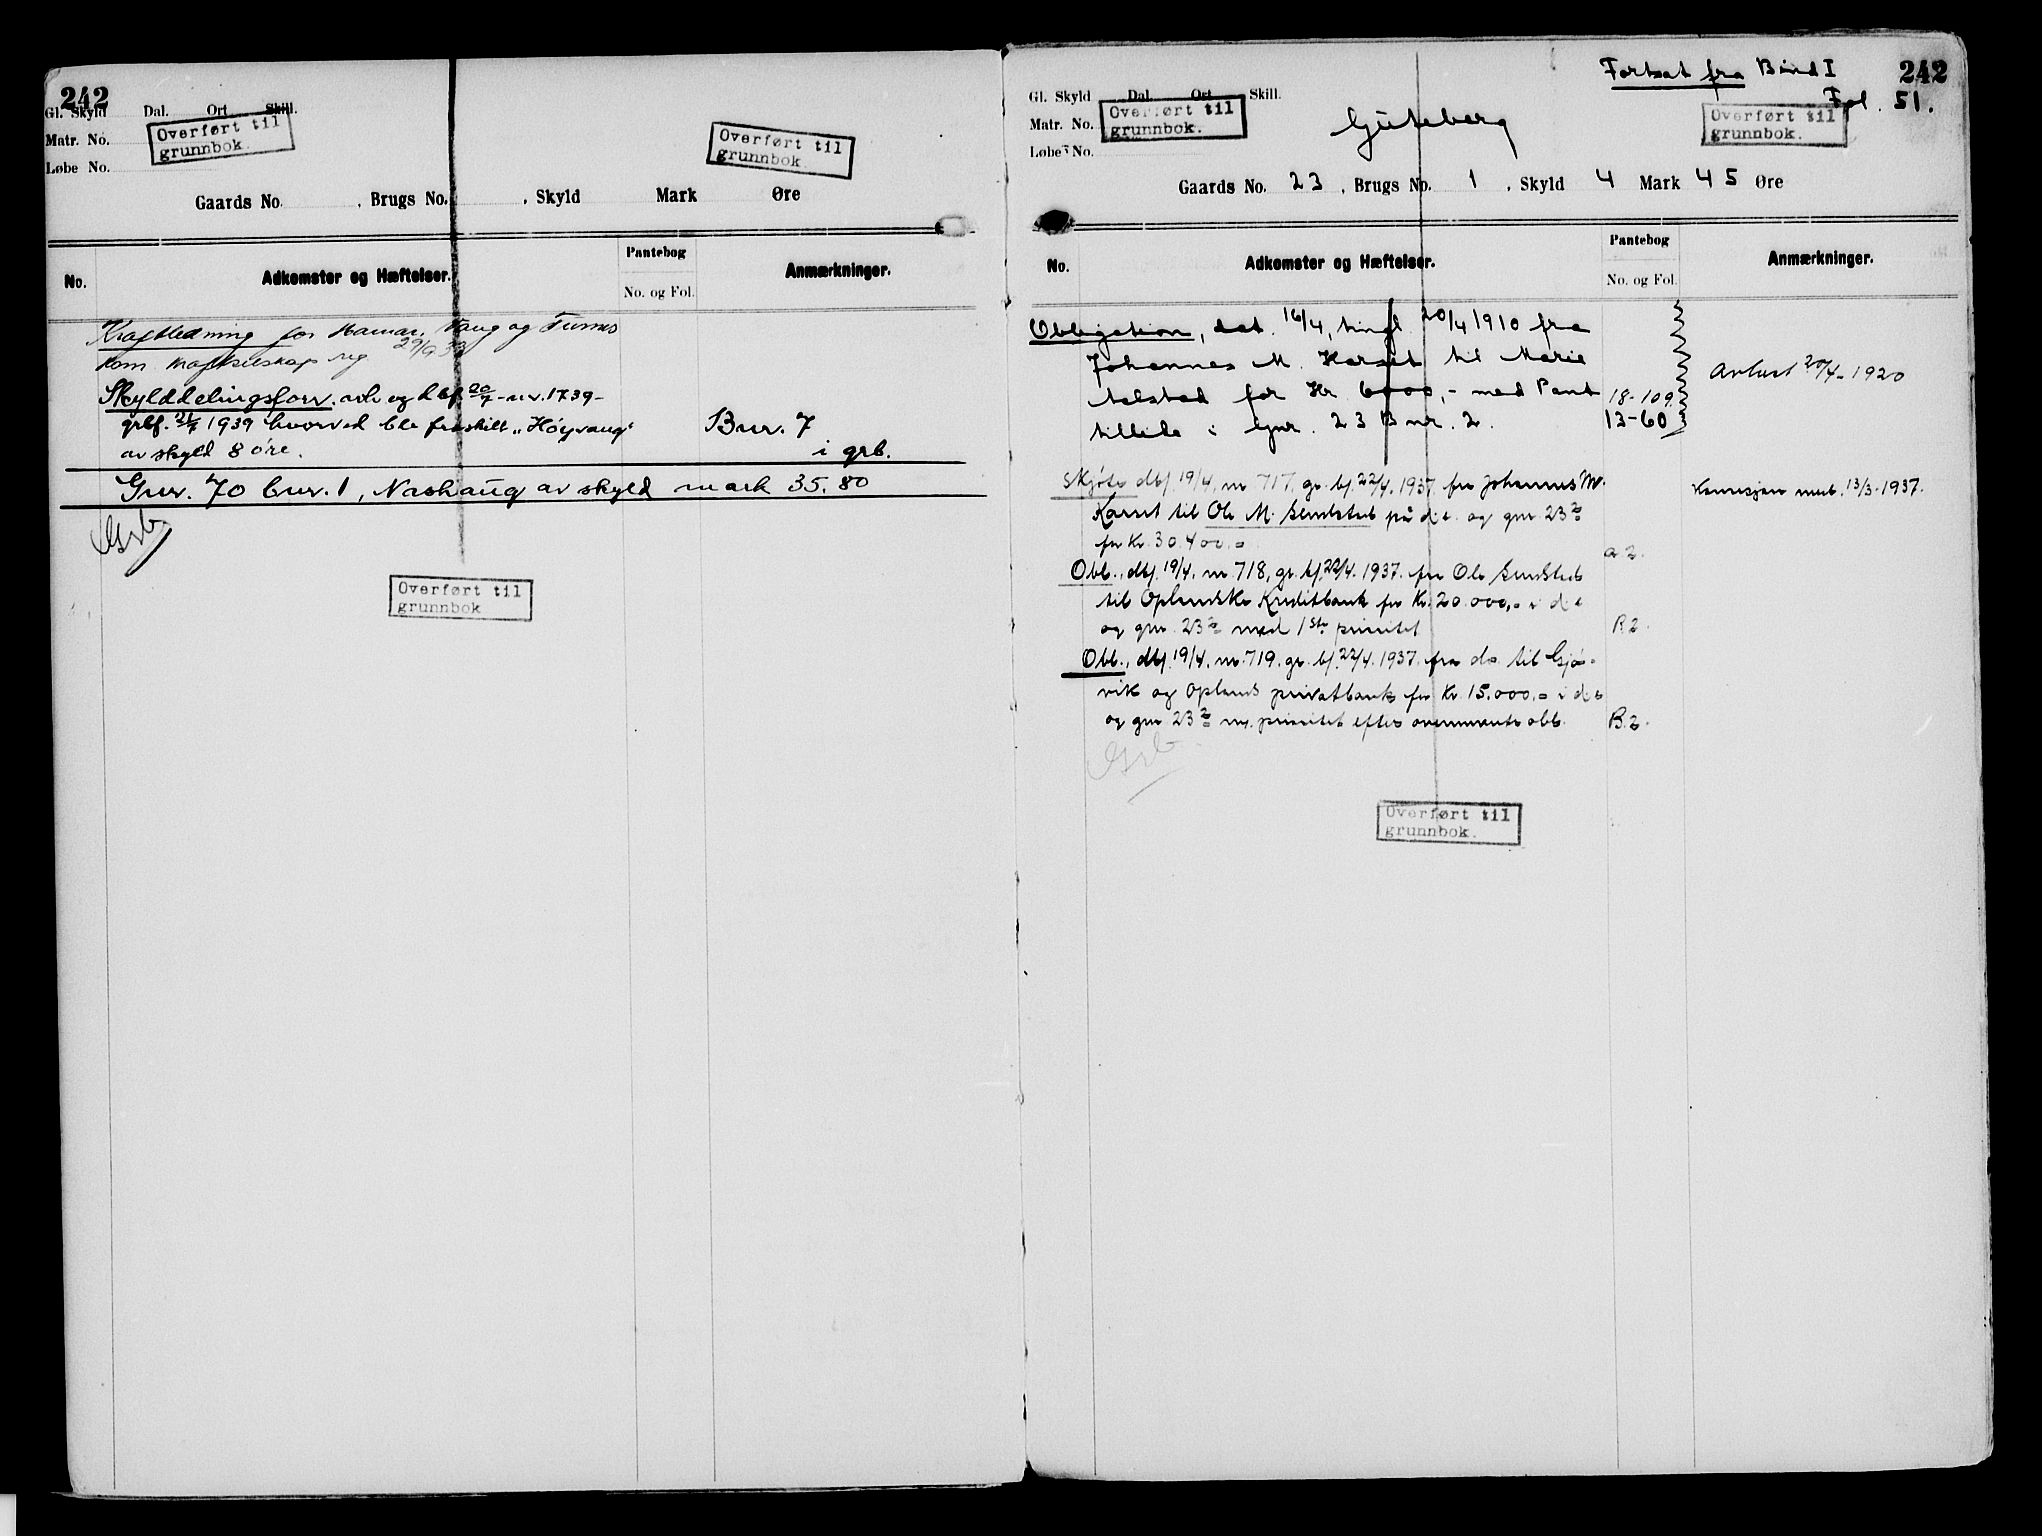 242
Gl. Skyld Dal. Ort Skill.
Matr. No.
Løbe No.
Overført til
grunnbok.
Overført til
grunnbok.
Gaards No. , Brugs No. , Skyld Mark Øre
No.
Adkomster og Hæftelser.
Pantebog
No. og Fol.
Anmærkninger.
Kraftledning for Hamar, Vang og Furnes
kom. kraftselskap 29/9 33
Skylddelingsforr. avh og dbf. 20/7 - nr. 1739 -
grbf. 21/7 1939 hvorved ble fraskilt „Høyvang"
av skyld 8 øre.
Bnr. 7
i grb.
Gnr. 70 bnr. 1, Nashaug av skyld mark 35.80
Grb
Overført til
grunnbok
Fortsat fra Bind I
Fol. 51.
242
Gl. Skyld Dal. Ort Skill.
Matr. No.
Løbe No.
Overført til
grunnbok.
Guteberg
Overført til
grunnbok.
Gaards No. 23 , Brugs No. 1 , Skyld 4 Mark 45 Øre
No.
Adkomster og Hæftelser.
Pantebog
No. og Fol.
Anmærkninger.
Obligation, dat. 16/4, tingl. 20/4 1910 fra
Johannes M. Karset til Marie
Aalstad for Kr. 6000,- med Pant 18-109.
tillike i Gnr. 23 Bnr. 2. 13-60
Avlust 20/4-1920
Skjøte dbf. 19/4, nr. 717, gr. bf. 22/4. 1937 fra Johannes M.
Karset til Ole M. på d.e. og gnr 23 2
for Kr. 30.400.=
a 2.
Konsesjon medd. 13/3-1937.
Obl., dbf. 19/4. nr. 718, gr. bf. 22/4. 1937. fra Ole
til Oplandske Kreditbank for Kr. 20.000,= i d.e
og gnr. 23 2 med 1ste prioritet
B 2.
Obl., dbf. 19/4. nr. 719. gr. bf. 22/4. 1937. fra do. til Gjø-
vik og Opland privatbank for Kr. 15.000.= i d.e
og gnr 23 2 m. prioritet efter ovennevnte obl.
B. 2.
Grb.
Overført til
grunnbok.